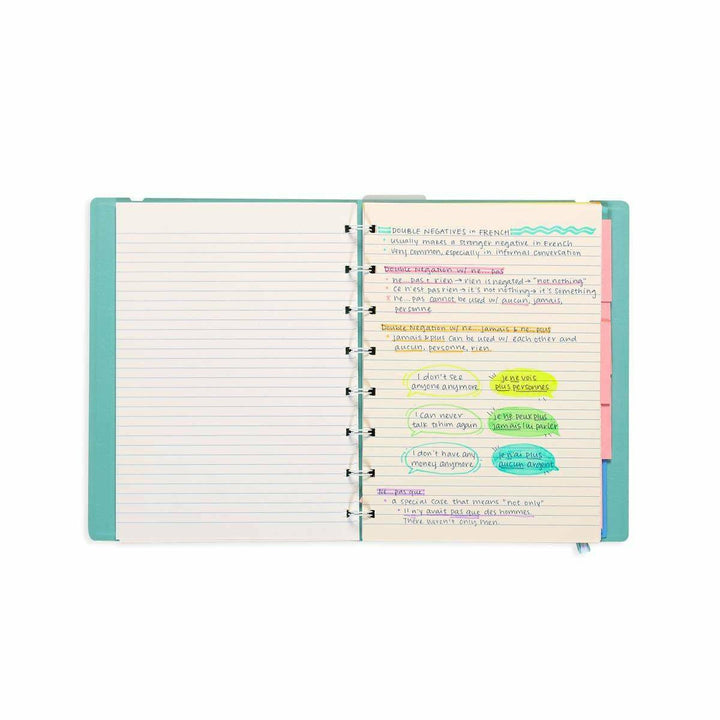 DOUBLE NEGATIVES in FRENCH
• usually makes a stronger negative in French
• very common, especially in informal conversation
Double Negation w/ ne...pas
• ne...pas + rien → rien is negated → "not nothing"
• ce n'est pas rien → it's not nothing → it's something
* ne...pas cannot be used w/ aucun, jamais,
personne
Double Negation w/ ne...jamais & ne...plus
• jamais & plus can be used w/ each other and
aucun, personne, rien
I don't see
anyone anymore
je ne vois
plus personnes
I can never
talk to him again
je ne peux plus
jamais lui parler
I don't have any
money anymore
je n'ai plus
aucun argent
Ne...pas que:
• a special case that means "not only"
• Il n'y avait pas que des hommes.
There weren't only men.